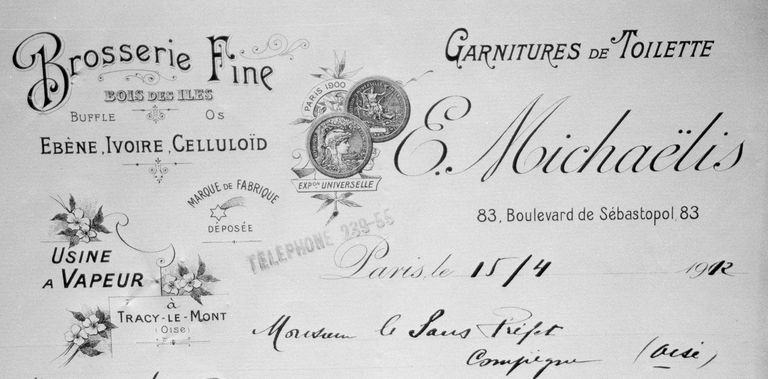 Brosserie Fine
BOIS DES ILES
BUFFLE OS
EBÈNE, IVOIRE, CELLULOÏD
MARQUE DE FABRIQUE
DÉPOSÉE
USINE
A VAPEUR
à
TRACY-LE-MONT
(OISE)
PARIS 1900
EXPON UNIVERSELLE
TELEPHONE 239-56
GARNITURES DE TOILETTE
E. Michaëlis
83, Boulevard de Sébastopol, 83
Paris, le 15/4 1912
Monsieur le Sous Préfet
Compiègne (Oise)